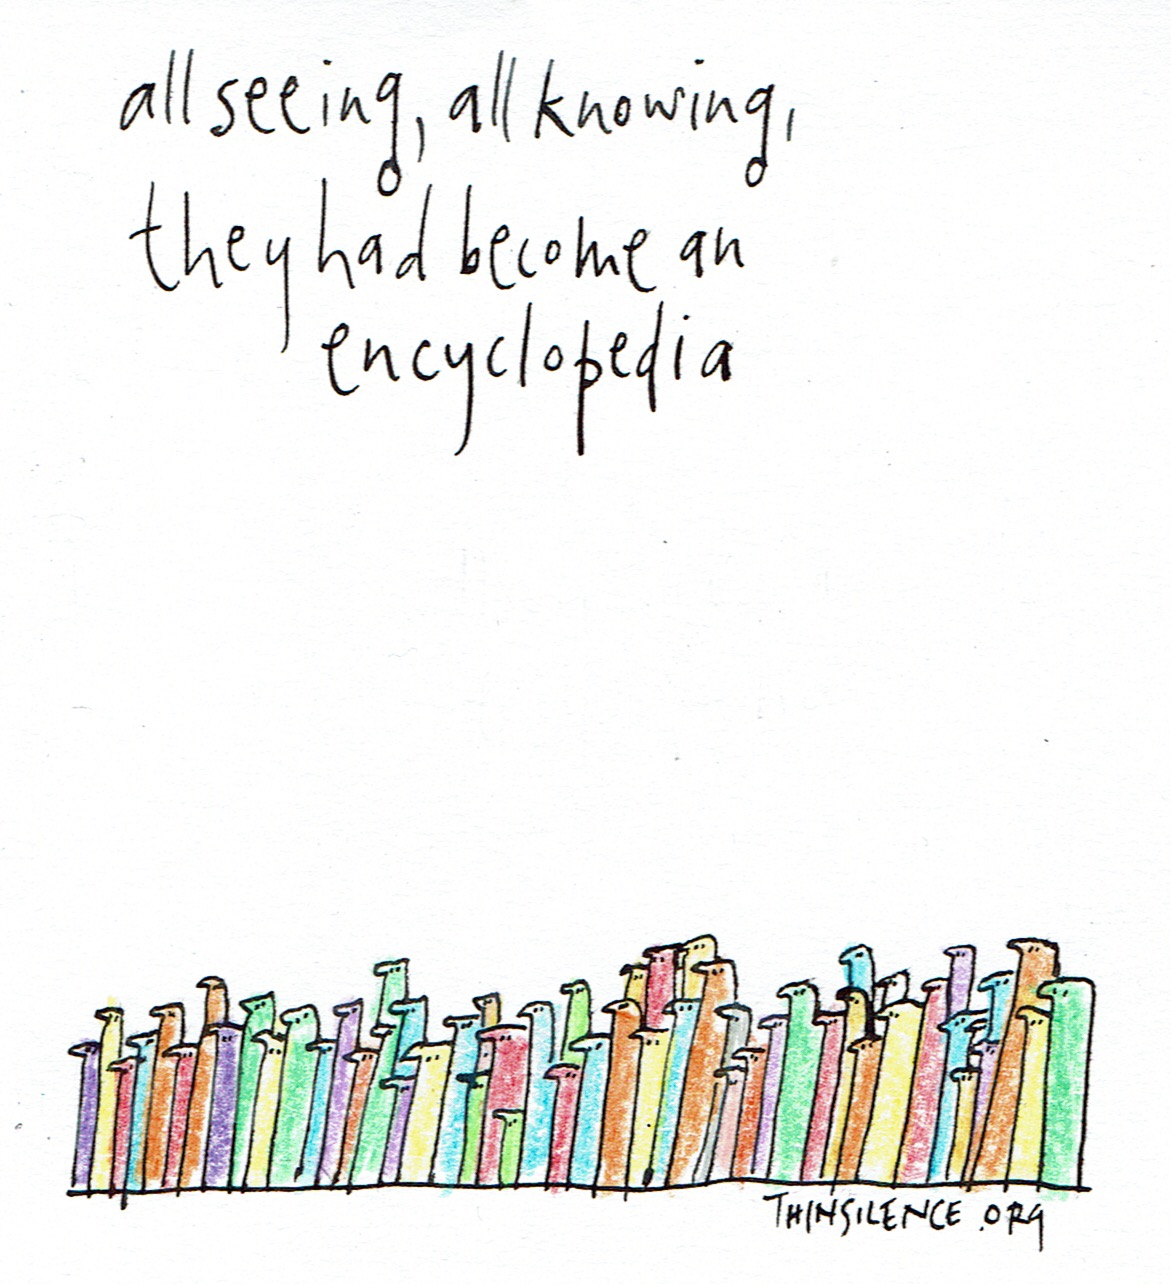 all seeing, all knowing,
they had become an
encyclopedia
THINSILENCE.ORG